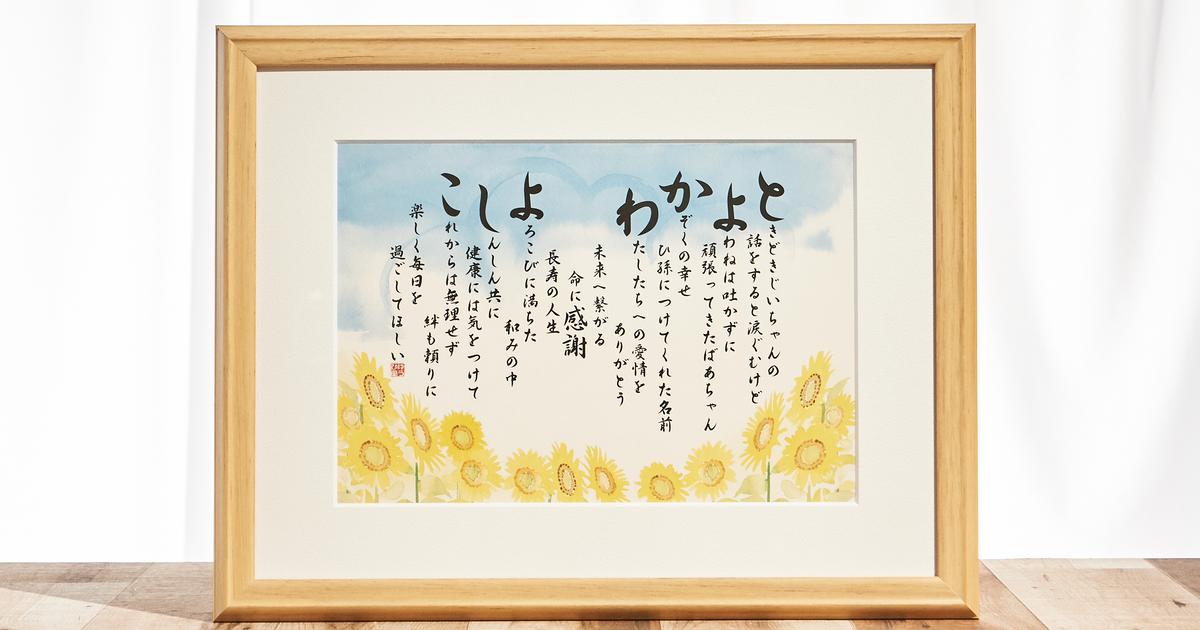 ときどきじいちゃんの
話をすると涙ぐむけど
よわねは吐かずに
頑張ってきたばあちゃん
かぞくの幸せ
ひ孫につけてくれた名前
わたしたちへの愛情を
ありがとう
未来へ繋がる
命に感謝
長寿の人生
よろこびに満ちた
和みの中
しんしん共に
健康には気をつけて
これからは無理せず
絆も頼りに
楽しく毎日を
過ごしてほしい